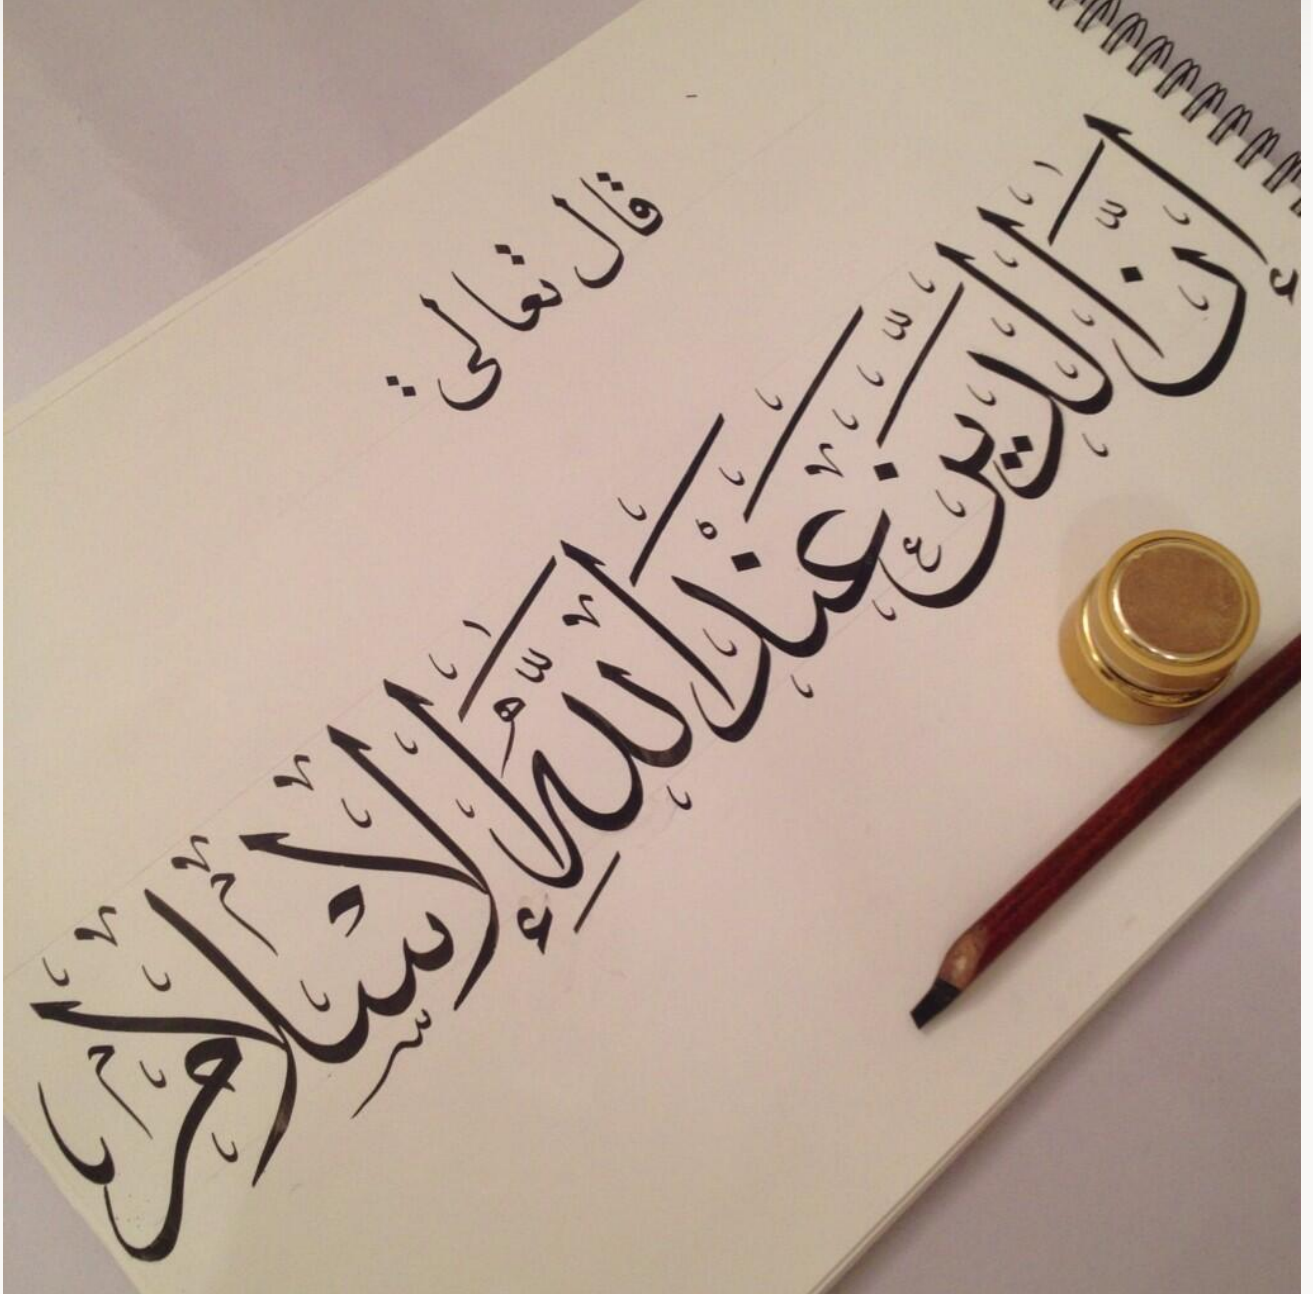 قال تعالى:
إنَّ الدين عند اللهِ الإسلام